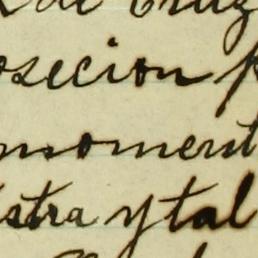 de Cruz
osecion p
moment
stra y tal